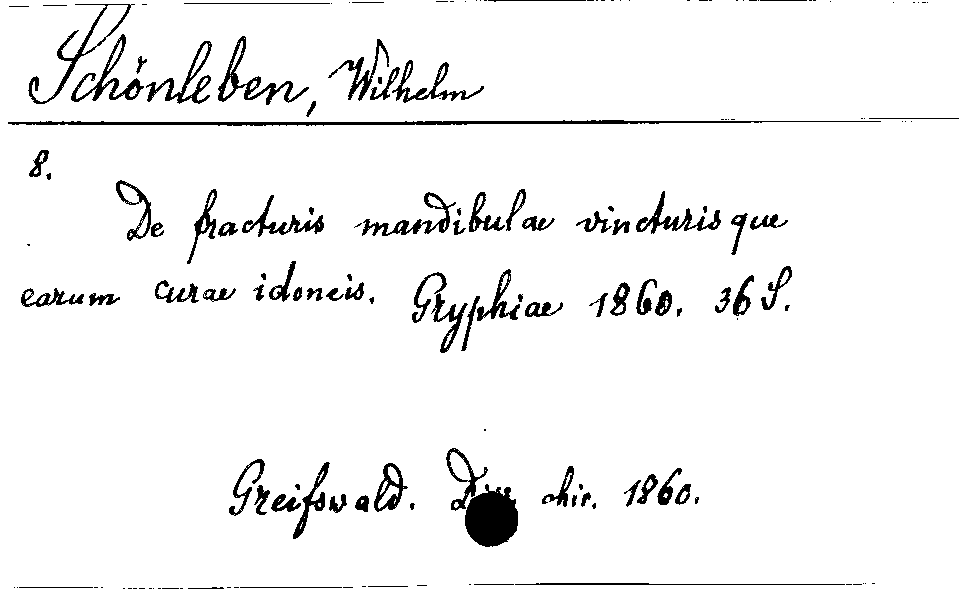 Schönleben, Wilhelm
8.
De fracturis mandibulae vincturisque
earum curae idoneis. Gryphiae 1860. 36 S.
Greifswald. Diss. chir. 1860.